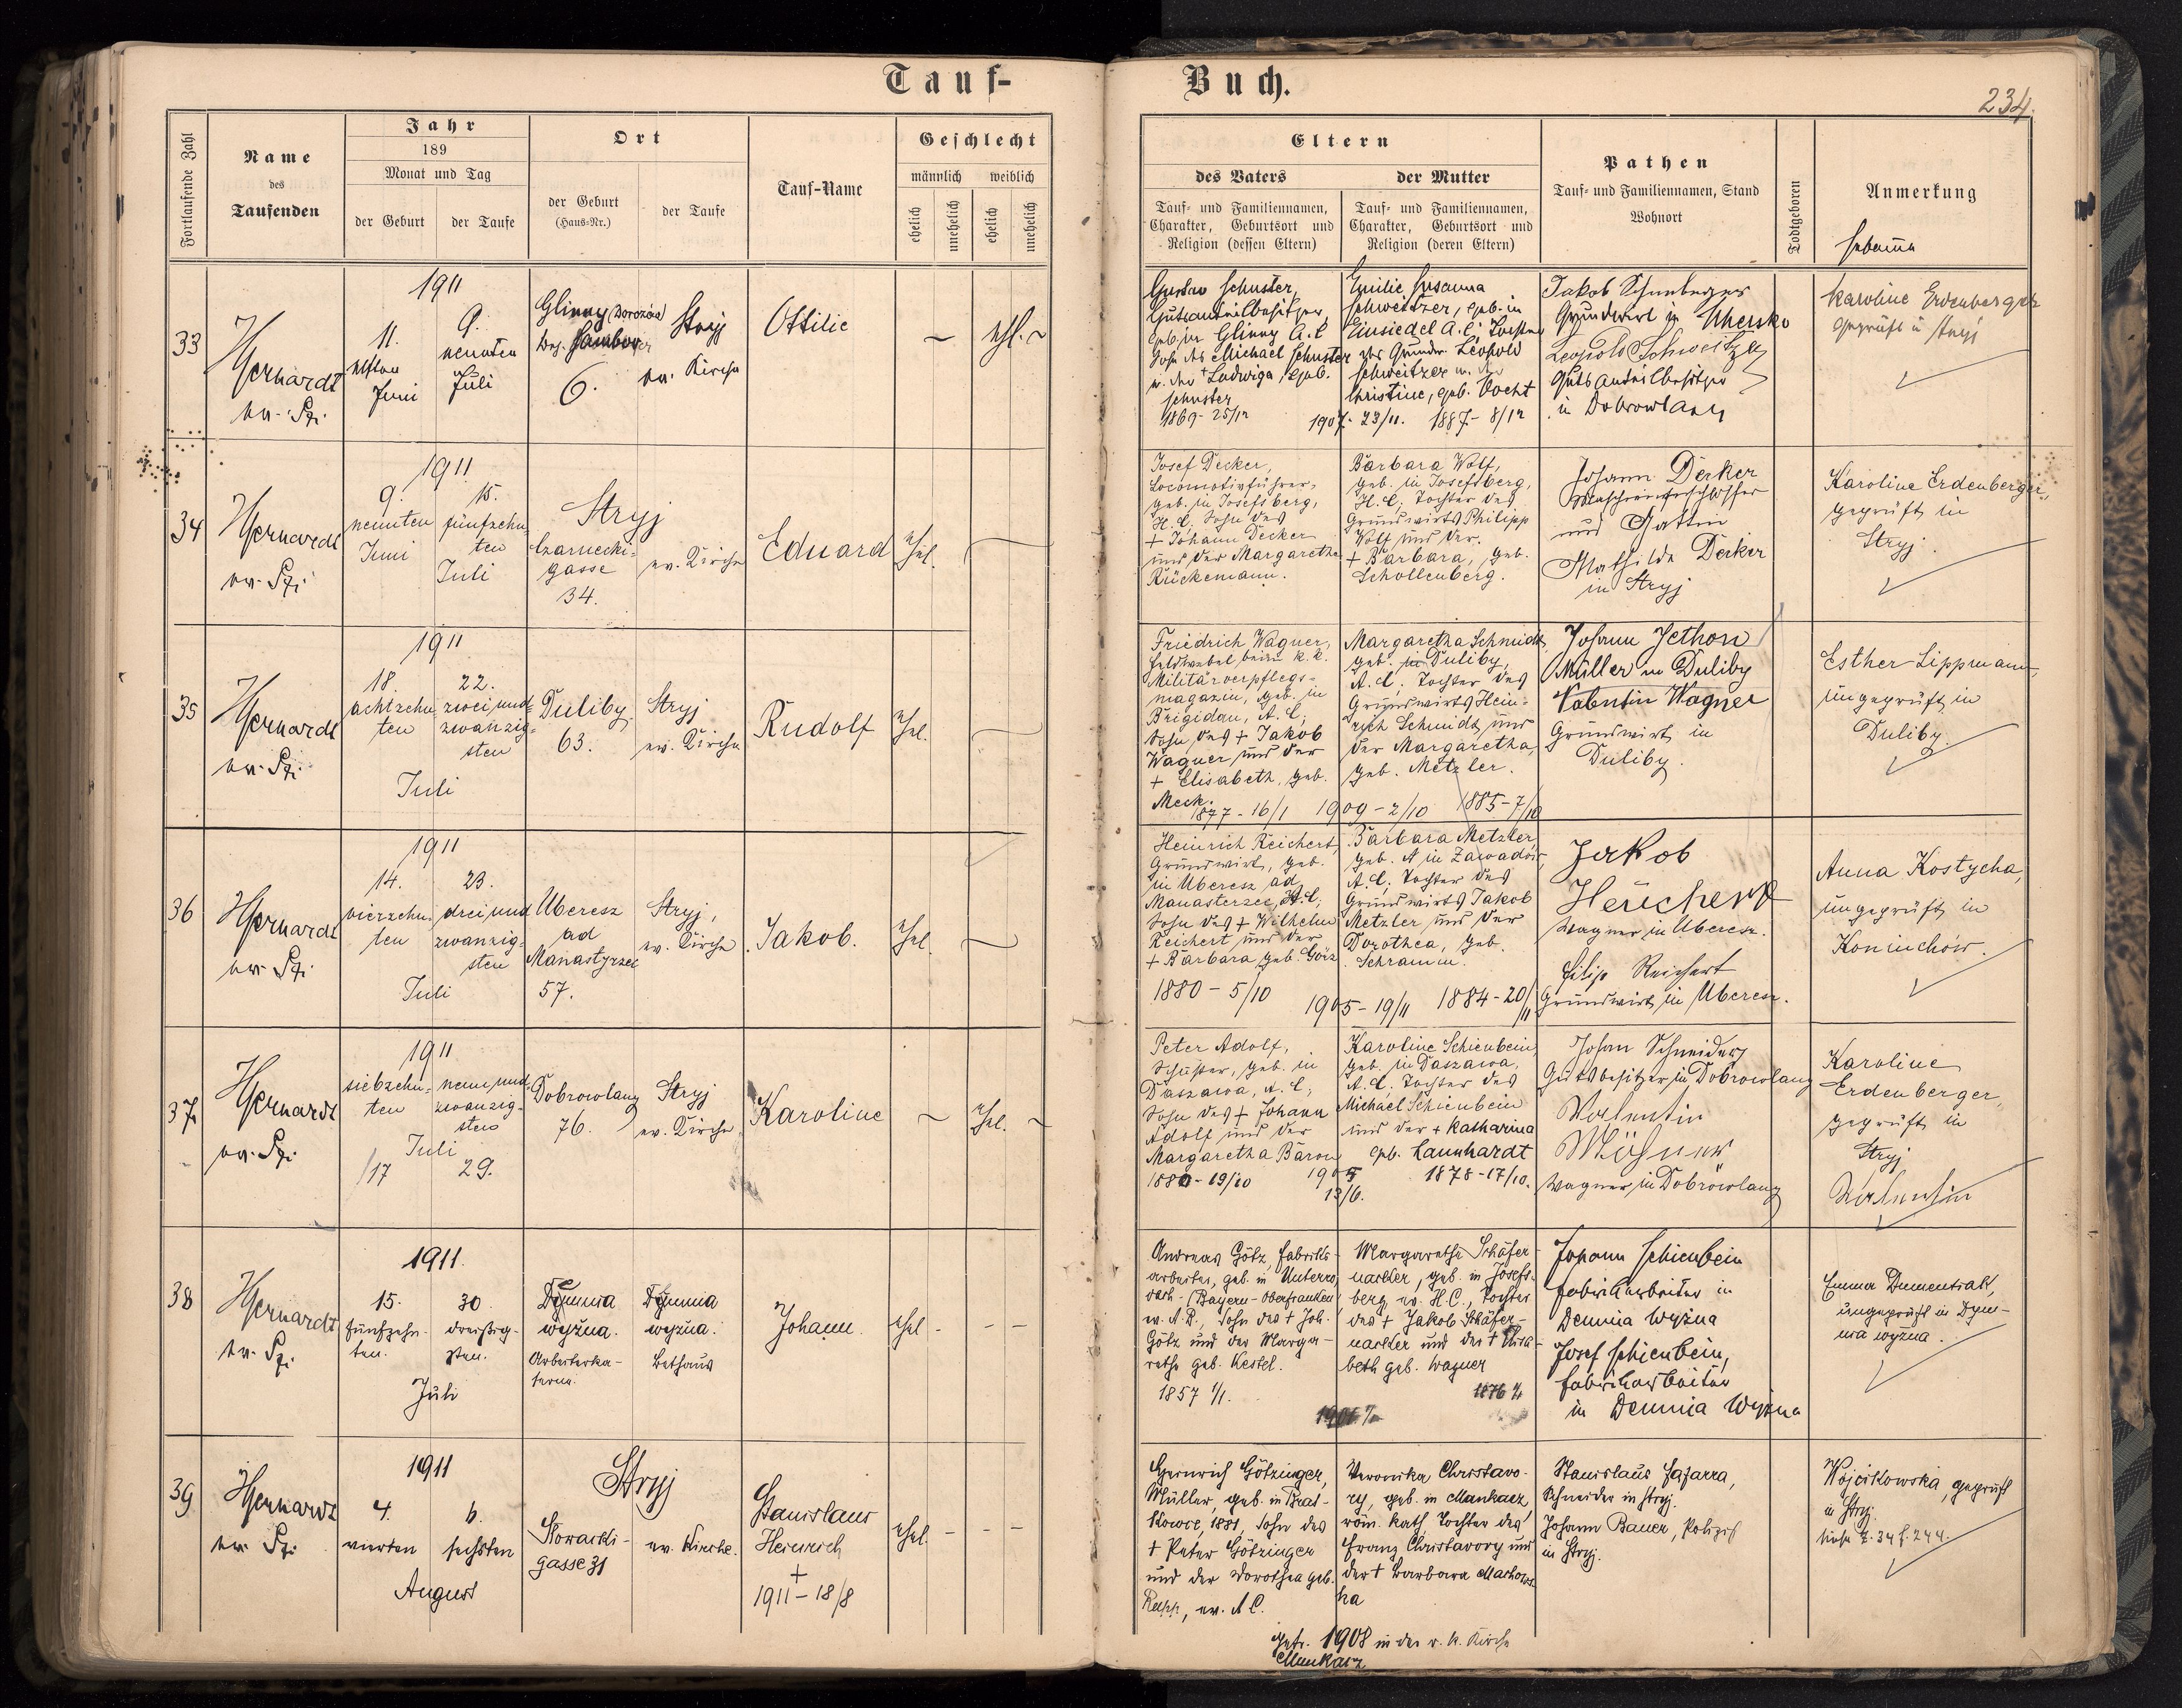 Tauf-
Buch.
234.
Fortlaufende Zahl
Name
des
Taufenden
Jahr
189
Monat und Tag
der Geburt
der Taufe
Ort
der Geburt
(Haus-Nr.)
der Taufe
Tauf-Name
Geschlecht
männlich
weiblich
ehelich
unehelich
ehelich
unehelich
Eltern
des Vaters
Tauf- und Familiennamen,
Charakter, Geburtsort und
Religion (dessen Eltern)
der Mutter
Tauf- und Familiennamen,
Charakter, Geburtsort und
Religion (deren Eltern)
Pathen
Tauf- und Familiennamen, Stand
Wohnort
Todtgeboren
Anmerkung
Hebamme
33
1911
11.
elften
Juni
9.
neunten
Juli
Glinny
6.
Stryj
ev. Kirche
Ottilie
ehl.
Gustav Schuster,
Gutsanteilbesitzer,
geb. in Glinny A.C.
Sohn des Michael Schuster
u. der Ludwiga, geb.
Schuster
1869 - 25/12
1907 - 23/11.
Emilie Susanna
Schweitzer, geb. in
Einsiedel A.C. Tochter
des Grundw. Leopold
Schweitzer u. der
Christine, geb. Vocht
1887 - 8/12
Jakob
Grundwirt in Uhersko
Leopold Schweitzer
Gutsanteilbesitzer
in Dobrowlany
Karoline Erdenberger
geprüft in Stryj
34
ev. Pfr.
1911
9.
neunten
Juni
15.
fünfzehn-
ten
Juli
Stryj
Czarnecki-
gasse
34.
ev. Kirche
Eduard
ehel.
Josef Decker,
Locomotivführer,
geb. in Josefsberg,
H.C. Sohn des
+ Johann Decker
und der Margaretha
Rückemann.
Barbara Wolf,
geb. in Josefsberg,
H.C. Tochter des
Grundwirts Philipp
Wolf und der
+ Barbara, geb.
Schollenberg.
Johann Decker
Maschinenschlosser
und Gattin
Mathilde Decker
in Stryj
Karoline Erdenberger,
geprüft in
Stryj.
35
ev. Pfr.
1911
18.
achtzehn-
ten
22.
zwei und
zwanzig-
sten
Juli
Duliby
63.
Stryj
ev. Kirche
Rudolf
ehel.
Friedrich Wagner,
Feldwebel beim k.k.
Militärverpflegs-
magazin, geb. in
Brigidau, A.C.,
Sohn des + Jakob
Wagner und der
+ Elisabeth, geb.
Meck.
1877 - 16/1
1909 - 2/10
Margaretha Schmidt,
geb. in Duliby,
A.C. Tochter des
Grundwirts Hein-
rich Schmidt und
der Margaretha,
geb. Metzler.
1885 - 7/10
Johann Jethon
Müller in Duliby
Valentin Wagner
Grundwirt in
Duliby.
Esther Lippmann,
ungeprüft in
Duliby.
36
ev. Pfr.
1911
14.
vierzehn-
ten
23.
drei und
zwanzig-
sten
Juli
Uberesz
ad
Manastyrzec
57.
Stryj,
ev. Kirche
Jakob.
ehel.
Heinrich Reichert,
Grundwirt, geb.
in Uberesz ad
Manasterzec, A.C.,
Sohn des + Wilhelm
Reichert und der
+ Barbara geb. Götz
1880 - 5/10
1905 - 19/11
Barbara Metzler
geb. in Zawadów,
A.C. Tochter des
Grundwirts Jakob
Metzler und der
Dorothea, geb.
Schramm.
1884 - 20/11
Jakob
Wagner in Uberesz.
Filip Reichert
Grundwirt in Uberesz.
Anna Kostycha,
ungeprüft in
Koniuchów.
37
ev. Pfr.
1911
siebzehn-
ten
neun und
zwanzig-
sten
Juli
17
29.
Dobrowlany
76.
Stryj
ev. Kirche
Karoline
ehel.
Peter Adolf,
Schuster, geb. in
Daszawa, A.C.,
Sohn des + Johann
Adolf und der
Margaretha Baron
1880 - 19/10
Karoline Schienbein,
geb. in Daszawa,
A.C. Tochter des
Michael Schienbein
und der + Katharina
geb. Launhardt
13/6.
1878 - 17/10.
Johan Schneider
Gutsbesitzer in Dobrowlany
Valentin
Wagner in Dobrowlany
Karoline
Erdenberger,
geprüft in
Stryj
38
ev. Pfr.
1911.
15.
fünfzehn-
ten.
30.
dreißig-
sten.
Juli
Demnia
wyżna.
Arbeiterka-
serne.
Demnia
wyżna.
Bethaus
Johann
ehel
Andreas Götz, Fabriks-
arbeiter, geb. in
(Bayern - Oberfranken)
Sohn des + Joh.
Götz und der Marga-
rethe geb. Kestel.
1857 1/1.
Margarethe Schäfer-
geb. in Josefs-
berg, ev. H.C., Tochter
des + Jakob Schäfer-
und der + Elisa-
beth geb. Wagner
Johann Schienbein
Fabriksarbeiter in
Demnia Wyżna
Josef Schienbein,
Fabriksarbeiter
in Demnia Wyżna
Emma
ungeprüft in Dym-
nia wyżna.
39
ev. Pfr.
1911
4.
vierten
6.
sechsten
August
Stryj
Slowacki-
gasse 31
ev. Kirche.
Stanislaus
Heinrich
+
1911 - 18/8
ehel.
Heinrich Götzinger,
Müller, geb. in Brat-
kowce, 1881, Sohn des
+ Peter Götzinger
und der Dorothea geb.
Rupp, ev. A.C.
Veronika Christavo-
ry, geb. in Munkacz,
röm. kath. Tochter des
Franz Christavory und
der + Barbara
ka
Stanislaus
Schneider in Stryj.
Johann Bauer, Polizist
in Stryj.
Wójcikowska, geprüft
in Stryj.
siehe Z. 34 f. 244.
getr. 1908 in der r. k. Kirche
Munkácz